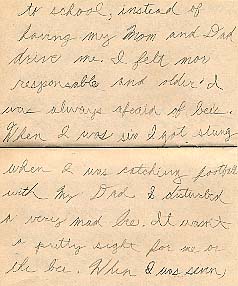 to school, instead of
having my Mom and Dad
drive me. I felt mor
responsable and older. I
was always afraid of bees.
When I was six I got stung
when I was catching football
with my Dad I disturbed
a very mad bee. It wasn't
a pretty sight for me or
the bee. When I was seven,